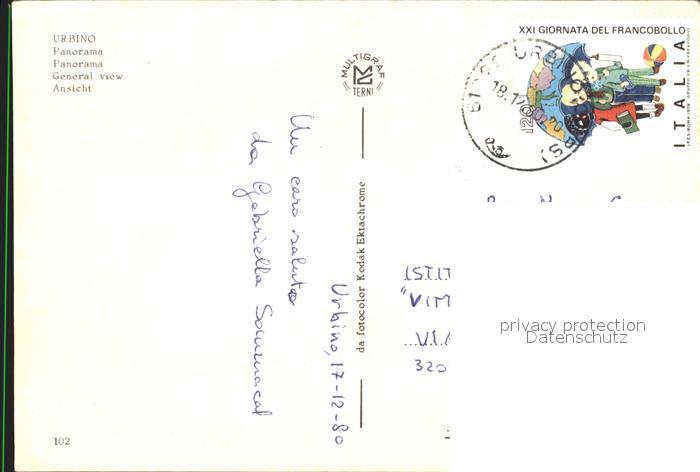 URBINO
Panorama
Panorama
General view
Ansicht
MULTIGRAF
TERNI
XXI GIORNATA DEL FRANCOBOLLO
ITALIA
120
Urbino, 17-12-80
Un caro saluto
da Gabriella
da fotocolor Kodak Ektachrome
ISTIT
"VIM
VIA
320
privacy protection
Datenschutz
102